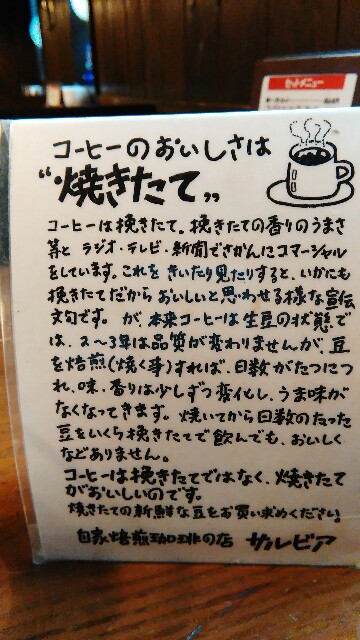 セットメニュー
コーヒーのおいしさは
“焼きたて„
コーヒーは挽きたて。挽きたての香りのうまさ
等とラジオ・テレビ・新聞でさかんにコマーシャル
をしています。これをきいたり見たりすると、いかにも
挽きたてだからおいしいと思わせる様な宣伝
文句です。が、本来コーヒーは生豆の状態で
は、2〜3年は品質が変わりませんが、豆
を焙煎(焼く事)すれば、日数がたつにつ
れ、味・香りは少しずつ変化し、うま味が
なくなってきます。焼いてから日数のたった
豆をいくら挽きたてで飲んでも、おいしく
などありません。
コーヒーは挽きたてではなく、焼きたて
がおいしいのです。
焼きたての新鮮な豆をお買い求めください。
自家焙煎珈琲の店 サルビア